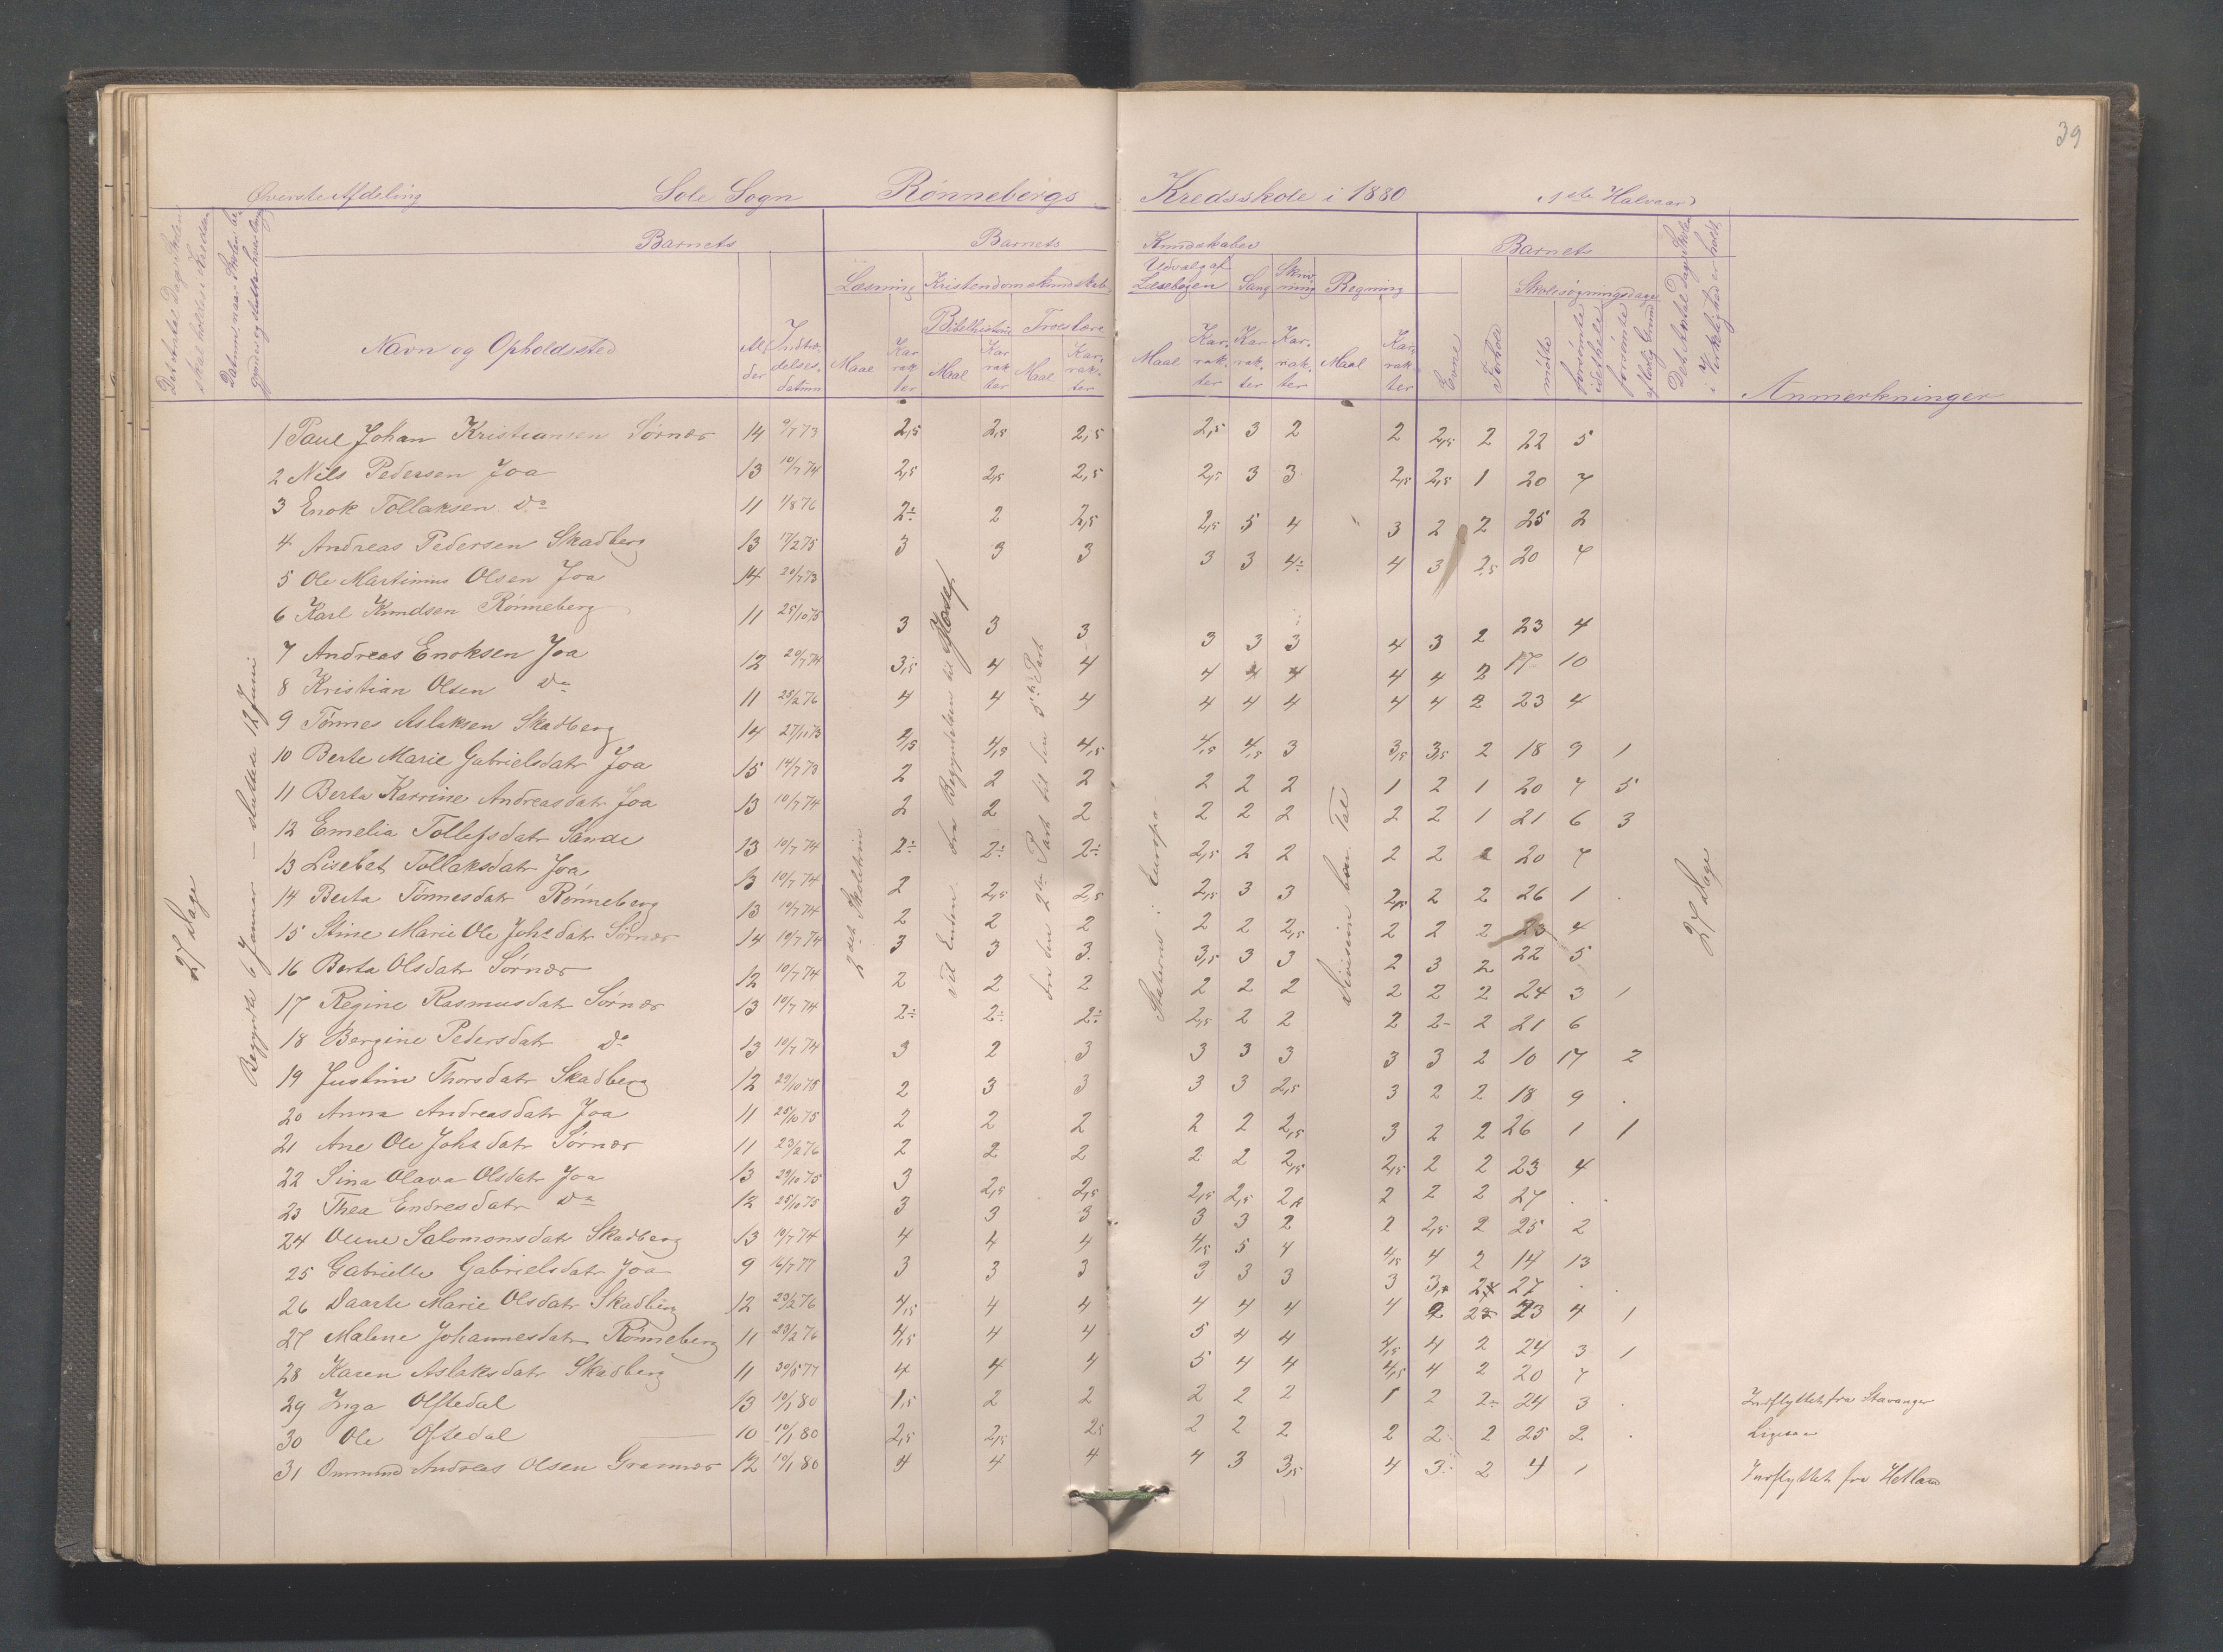 39
Øverste Afdeling Sole Sogn Rønnebergs Kredsskole i 1880 1ste Halvaar
Det Antal Dage Skolen skal holdes i Kredsen
Datum, naar Skolen begynder og slutter hver Gang
Barnets
Barnets Kundskaber
Barnets
Det Antal Dage Skolen i Virkelighed er holdt
Læsning Kristendomskundskab Udvalg af Læsebogen Sang Skrivning Regning
Bibelhistorie Troeslære
Skolesøgningsdage
Navn og Opholdssted Alder Indtrædelsesdatum Maal Karrakter Maal Karrakter Maal Karrakter Maal Karrakter Karrakter Karrakter Maal Karrakter Evne Forhold mødte forsømte i det hele forsømte af lovlig Grund Anmerkninger
27 Dage
Begyndte 6 Januar – sluttede 12 Juni
2det Skoletrin
fra Begyndelsen til Josef
ved Enden
fra den 2den Part til den 3die Part
Staterne i Europa
Division hon. Tal
27 Dage
1 Paul Johan Kristiansen Sørnes 14 9/7 73 2,5 2,5 2,5 2,5 3 2 2 2,5 2 22 5
2 Nils Pedersen Joa 13 10/7 74 2,5 2,5 2,5 2,5 3 3 2,5 2,5 1 20 7
3 Enok Tollaksen Do 11 1/8 76 2÷ 2 2,5 2,5 5 4 3 2 2 25 2
4 Andreas Pedersen Skadberg 13 17/2 75 3 3 3 3 3 4÷ 4 3 2,5 20 7
5 Ole Martinius Olsen Joa 14 20/7 73
6 Karl Knudsen Rønneberg 11 25/10 75 3 3 3 3 3 3 4 3 2 23 4
7 Andreas Enoksen Joa 12 20/7 74 3,5 4 4 4 4 4 4 4 2 17 10
8 Kristian Olsen Do 11 25/2 76 4 4 4 4 4 4 4 4 2 23 4
9 Tønnes Aslaksen Skadberg 14 27/11 73 4,5 4,5 4,5 4,5 4,5 3 3,5 3,5 2 18 9 1
10 Berte Marie Gabrielsdatr Joa 15 14/7 73 2 2 2 2 2 2 1 2 1 20 7 5
11 Berta Katrine Andreasdatr Joa 13 10/7 74 2 2 2 2 2 2 2 2 1 21 6 3
12 Emelia Tollefsdatr Sande 13 10/7 74 2÷ 2÷ 2÷ 2,5 2 2 2 2 2 20 7
13 Lisebet Tollaksdatr Joa 13 10/7 74 2 2,5 2,5 2,5 3 3 2,5 2 2 26 1
14 Berta Tønnesdatr Rønneberg 13 10/7 74 2 2 2 2 2 2,5 2 2 2 23 4
15 Stine Marie Ole Johsdatr Sørnes 14 10/7 74 3 3 3 3,5 3 3 2 3 2 22 5
16 Berta Olsdatr Sørnes 12 10/7 74 2 2 2 2 2 2 2 2 2 24 3 1
17 Regine Rasmusdatr Sørnes 13 10/7 74 2÷ 2÷ 2÷ 2,5 2 2 2 2- 2 21 6
18 Bergine Pedersdatr Do 13 10/7 74 3 2 3 3 3 3 3 3 2 10 17 2
19 Justine Thorsdatr Skadberg 12 29/10 75 2 3 3 3 3 2,5 3 2 2 18 9
20 Anna Andreasdatr Joa 11 25/10 75 2 2 2 2 2 2,5 3 2 2 26 1 1
21 Ane Ole Johsdatr Sørnes 11 23/2 76 2 2 2 2 2 2,5 2,5 2 2 23 4
22 Sina Olava Olsdatr Joa 13 29/10 75 3 2,5 2,5 2,5 2,5 2,5 2 2 2 27
23 Thea Endresdatr Do 12 25/10 75 3 3 3 3 3 2 2 2,5 2 25 2
24 Oline Salomonsdatr Skadberg 13 10/7 74 4 4 4 4,5 5 4 4,5 4 2 14 13
25 Gabrielle Gabrielsdatr Joa 9 16/7 77 3 3 3 3 3 3 3 27
26 Daarte Marie Olsdatr Skadberg 12 29/2 76 4,5 4 4 4 4 4 4 23 4 1
27 Malene Johannesdatr Rønneberg 11 23/2 76 4,5 4 4 5 4 4 4,5 4 2 24 3 1
28 Karen Aslaksdatr Skadberg 11 30/5 77 4 4 4 5 4 4 4,5 4 2 20 7
29 Inga Oftedal 13 10/1 80 1,5 2 2 2 2 2 1 2 2÷ 24 3 Indflyttet fra Stavanger
30 Ole Oftedal 10 10/1 80 2,5 2,5 2,5 2 2 2 2 2 2 25 2 Ligesaa
31 Ommund Andreas Olsen Grannes 12 10/1 80 4 4 4 4 3 3,5 4 3 2 4 1 Indflyttet fra Hetland